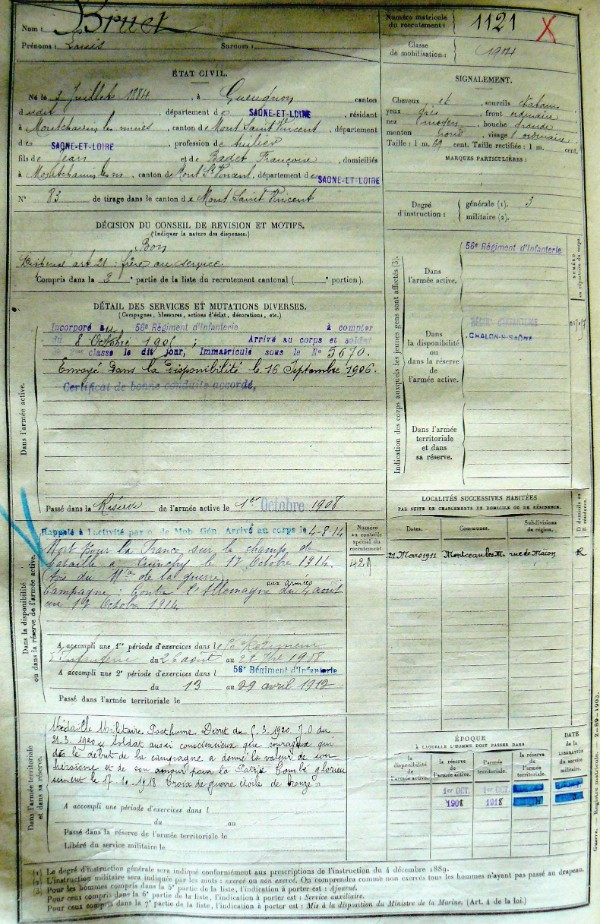 Nom : Bruet
Prénoms : Louis Surnom :
Numéro matricule du recrutement : 1121 X
Classe de mobilisation : 1904
ÉTAT CIVIL.
Né le Juillet 1884, à Gueugnon canton
dudit département de SAÔNE-ET-LOIRE, résidant
à Montchanin les mines, canton de Mont Saint Vincent, département
de SAÔNE-ET-LOIRE, profession de
fils de Jean et de Françoise, domiciliés
à Montchanin les m, canton de Mont St Vincent, département de SAÔNE-ET-LOIRE
N° 83 de tirage dans le canton de Mont Saint Vincent
SIGNALEMENT.
Cheveux et sourcils châtains
yeux gris front ordinaire
nez moyen, bouche grande
menton rond, visage ordinaire
Taille : 1 m. 69 cent. Taille rectifiée : 1 m. cent.
MARQUES PARTICULIÈRES :
Degré d'instruction : générale (1). 3
militaire (2).
DÉCISION DU CONSEIL DE REVISION ET MOTIFS.
(Indiquer la nature des dispenses.)
Bon
Dispensé art 21 : frère au service
Compris dans la 3e partie de la liste du recrutement cantonal ( portion).
DÉTAIL DES SERVICES ET MUTATIONS DIVERSES.
(Campagnes, blessures, actions d'éclat, décorations, etc.)
Dans l'armée active.
Incorporé au 56e Régiment d'Infanterie à compter
du 8 Octobre 1905 ; Arrivé au corps et soldat
classe le dit jour, Immatriculé sous le N° 5670.
Envoyé dans la disponibilité le 16 Septembre 1906.
Certificat de bonne conduite accordé,
Passé dans la Réserve de l'armée active le 1er Octobre 1908
Indication des corps auxquels les jeunes gens sont affectés (3).
Dans l'armée active.
56e Régiment d'Infanterie
Dans la disponibilité ou dans la réserve de l'armée active.
RÉGIMENT D'INFANTERIE
CHALON-S-SAÔNE
Dans l'armée territoriale et dans sa réserve.
Dans la disponibilité ou dans la réserve de l'armée active.
Rappelé à l'activité par Mobilisation Arrivé au corps le 4-8-14
Mort pour la France sur le champ de
bataille à le 17 Octobre 1914
Avis du Mtre de la guerre
Campagne : Contre l'Allemagne aux armées du 4 août
au 17 Octobre 1914
A accompli une 1re période d'exercices dans l
d'Infanterie du 26 août au 1908
A accompli une 2e période d'exercices dans l 56e Régiment d'Infanterie
du 13 au 29 avril 1912
Passé dans l'armée territoriale le
Numéro au contrôle spécial du recrutement :
LOCALITÉS SUCCESSIVES HABITÉES
PAR SUITE DE CHANGEMENTS DE DOMICILE OU DE RÉSIDENCE.
Dates. Communes. Subdivisions de région. D domicile ou R résidence.
21 Mars 1911 Montceau les M. rue de Macon R
Dans l'armée territoriale et dans sa réserve.
Médaille Militaire Posthume Décret du J.O du
1920 "Soldat aussi consciencieux que courageux qui
dès le début de la campagne a donné la valeur de son
héroïsme et de son amour pour la Patrie. Tombé glorieu-
sement le Croix de guerre étoile de bronze"
A accompli une période d'exercices dans l
du au
Passé dans la réserve de l'armée territoriale le
Libéré du service militaire le
ÉPOQUE
À LAQUELLE L'HOMME DOIT PASSER DANS
la disponibilité de l'armée active. la réserve de l'armée active. l'armée territoriale. la réserve de l'armée territoriale.
DATE DE LA LIBÉRATION DU SERVICE MILITAIRE.
1er OCT. 1908 1er OCT. 1918
(1) Le degré d'instruction générale sera indiqué conformément aux prescriptions de l'instruction du 4 décembre 1889.
(2) L'instruction militaire sera indiquée par les mots : exercé ou non exercé. On comprendra comme non exercés tous les hommes n'ayant pas passé au drapeau.
(3) Pour les hommes compris dans la 5e partie de la liste, l'indication à porter est : Ajourné.
Pour ceux compris dans la 6e partie de la liste, l'indication à porter sera : Service auxiliaire.
Pour ceux compris dans la 7e partie de la liste, l'indication à porter est : Mis à la disposition du Ministre de la Marine. (Art. 4 de la loi.)